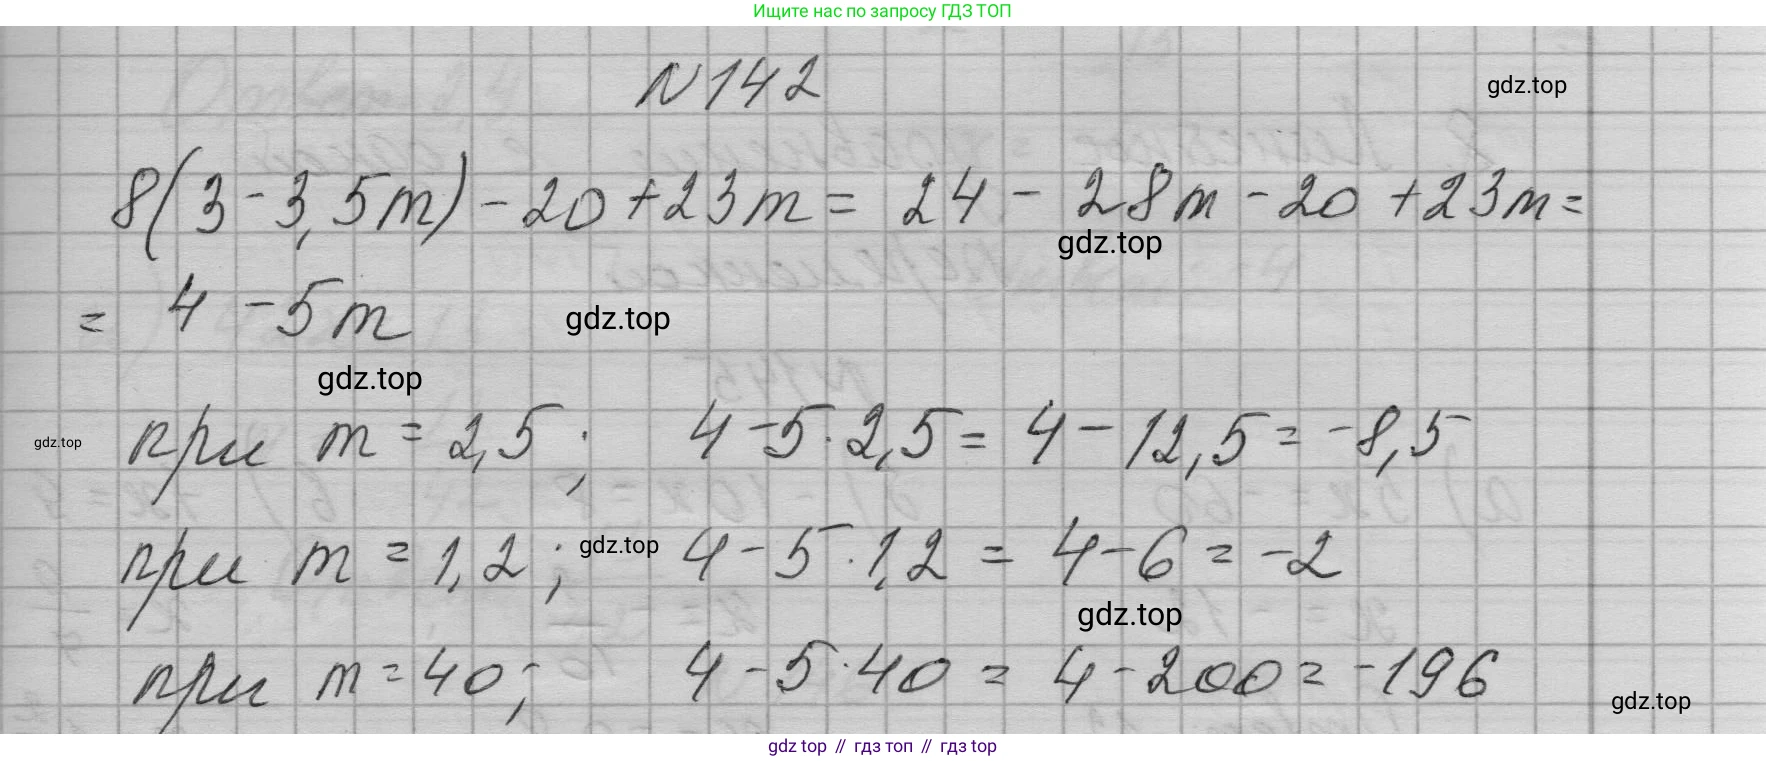 Ищите нас по запросу ГДЗ ТОП
N 142
gdz.top
8(3-3,5m)-20+23m= 24- 28m-20 +23m=
gdz.top
= 4 -5m
gdz.top
gdz.top
при m=2,5; 4-5·2,5= 4-12,5=-8,5
gdz.top
при m=1,2; 4-5·1,2= 4-6=-2
gdz.top
gdz.top
при m=40; 4-5·40= 4-200=-196
gdz.top
gdz top // гдз топ // gdz top